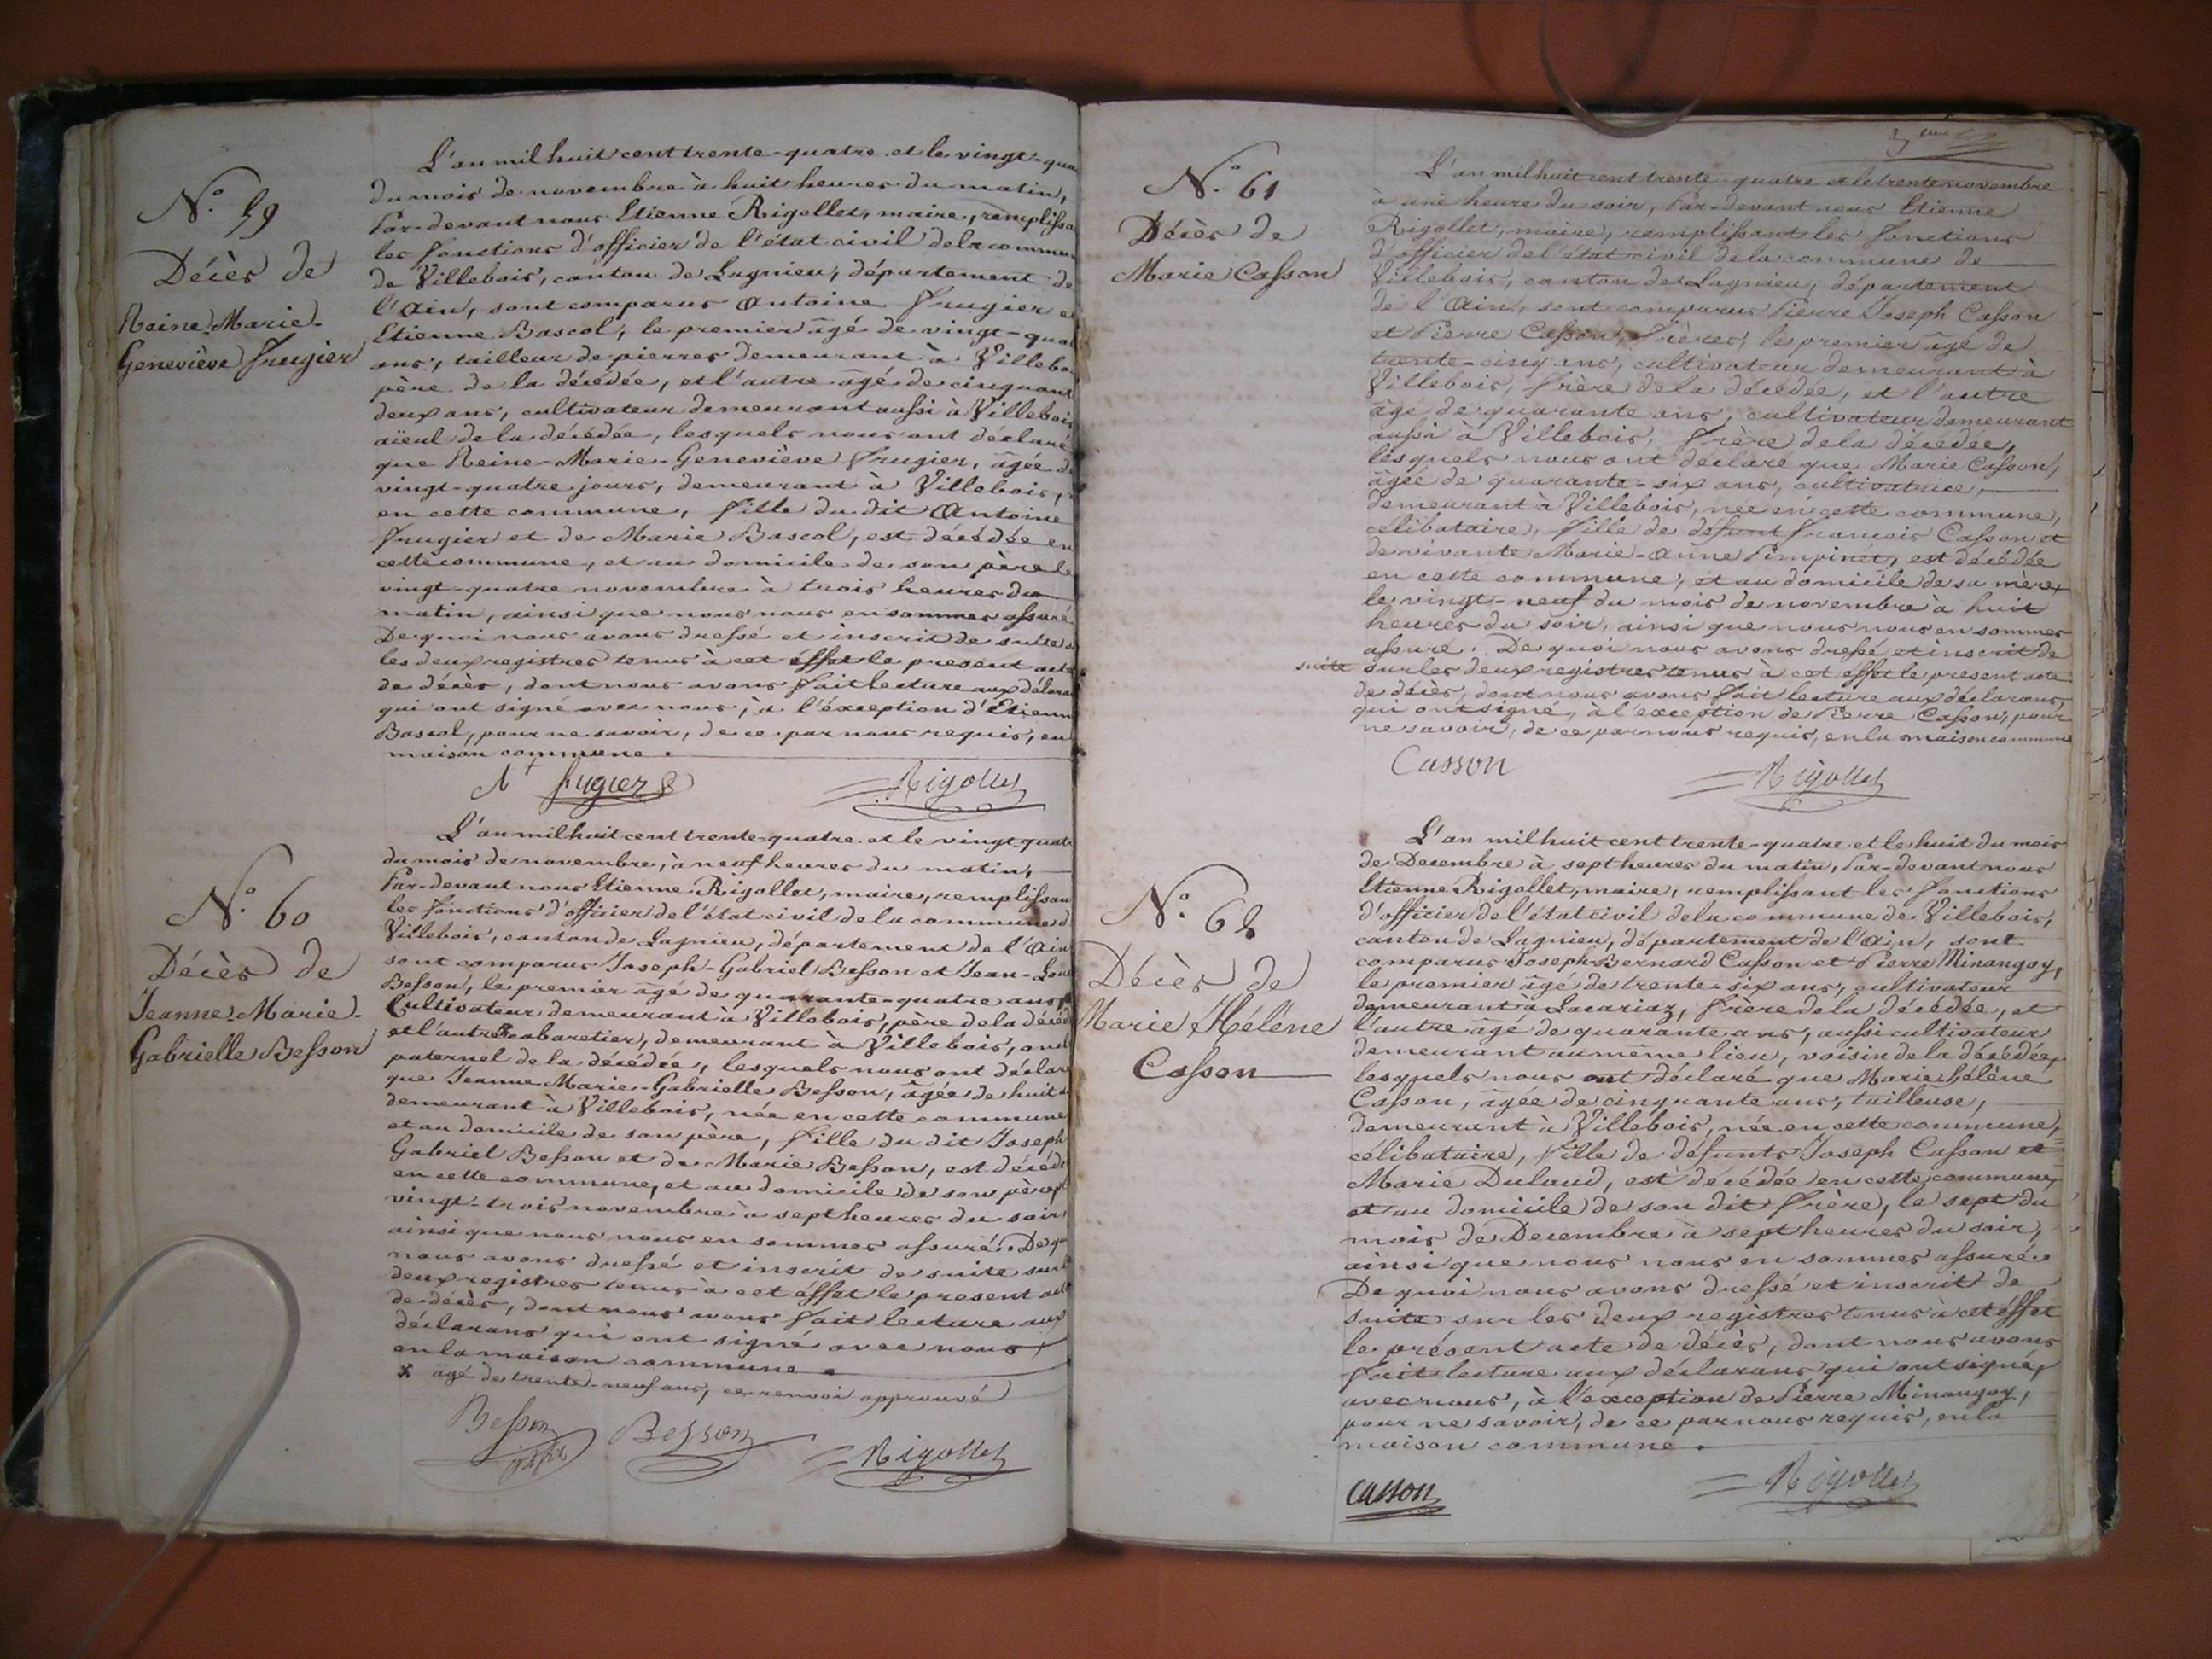 N.° 59
Décès de
Reine-Marie-
Geneviève Frugier
L'an mil huit cent trente-quatre et le vingt-qua
du mois de novembre à huit heures du matin,
Par-devant nous Etienne Rigollet, maire, remplissa
les fonctions d'officier de l'état civil de la commu
de Villebois, canton de Lagnieu, département de
l'Ain, sont comparus Antoine Frugier e
Etienne Bascol, le premier âgé de vingt-qua
ans, tailleur de pierres demeurant à Villebo
père de la décédée, et l'autre âgé de cinquant
deux ans, cultivateur demeurant aussi à Villebois
aïeul de la décédée, lesquels nous ont déclaré
que Reine-Marie-Geneviève Frugier, âgée d
vingt-quatre jours, demeurant à Villebois,
en cette commune, fille du dit Antoine
Frugier et de Marie Bascol, est décédée en
cette commune, et au domicile de son père le
vingt-quatre novembre à trois heures du
matin, ainsi que nous nous en sommes assuré
De quoi nous avons dressé et inscrit de suite s
les deux registres tenus à cet éffet le present acte
de décès, dont nous avons fait lecture aux déclara
qui ont signé avec nous, à l'éxception d'Etienn
Bascol, pour ne savoir, de ce par nous requis, en
maison commune.
frugier Rigollet
N.° 60
Décès de
Jeanne-Marie-
Gabrielle Besson
L'an mil huit cent trente-quatre et le vingt quat
du mois de novembre, à neuf heures du matin,
Par-devant nous Etienne Rigollet, maire, remplissan
les fonctions d'officier de l'état civil de la commune d
Villebois, canton de Lagnieu, département de l'Ain
sont comparus Joseph-Gabriel Besson et Jean-Lou
Besson, le premier âgé de quarante-quatre ans,
Cultivateur demeurant à Villebois, père de la décéd
et l'autre x cabaretier, demeurant à Villebois, onc
paternel de la décédée, lesquels nous ont déclar
que Jeanne-Marie-Gabrielle Besson, âgée de huit a
demeurant à Villebois, née en cette commune
et au domicile de son père, fille du dit Joseph
Gabriel Besson et de Marie Besson, est décéd
en cette commune, et au domicile de son père,
vingt-trois novembre à sept heures du soir,
ainsi que nous nous en sommes assuré. De qu
nous avons dressé et inscrit de suite sur
deux registres tenus à cet éffet le present ac
de décès, dont nous avons fait lecture aux
déclarans qui ont signé avec nous
en la maison commune.
x âgé de trente-neuf ans, ce renvoi approuvé
Besson Besson Rigollet
N.° 61
Décès de
Marie Casson
L'an mil huit cent trente-quatre et le trente novembre
à une heure du soir, Par-devant nous Etienne
Rigollet, maire, remplissant les fonctions
d'officier de l'état civil de la commune de
Villebois, canton de Lagnieu, département
de l'Ain, sont comparus Pierre Joseph Casson
et Pierre Casson, frères, le premier âgé de
trente-cinq ans, cultivateur demeurant à
Villebois, frère de la décédée, et l'autre
âgé de quarante ans, cultivateur demeurant
aussi à Villebois, frère de la décédée,
lesquels nous ont déclaré que Marie Casson,
âgée de quarante-six ans, cultivatrice,
demeurant à Villebois, née en cette commune,
célibataire, fille de défunt François Casson et
de vivante Marie-Anne Pimpinet, est décédée
en cette commune, et au domicile de sa mère,
le vingt-neuf du mois de novembre à huit
heures du soir, ainsi que nous nous en sommes
assuré. De quoi nous avons dressé et inscrit de
suite sur les deux registres tenus à cet éffet le present acte
de décès, dont nous avons fait lecture aux déclarans,
qui ont signé, à l'exception de Pierre Casson, pour
ne savoir, de ce par nous requis, en la maison commune
Casson Rigollet
N.° 62
Décès de
Marie Hélène
Casson
L'an mil huit cent trente-quatre et le huit du mois
de Decembre à sept heures du matin, Par-devant nous
Etienne Rigollet, maire, remplissant les fonctions
d'officier de l'état civil de la commune de Villebois,
canton de Lagnieu, département de l'Ain, sont
comparus Joseph-Bernard Casson et Pierre Minangoy,
le premier âgé de trente-six ans, cultivateur
demeurant à Lacariaz, frère de la décédée, et
l'autre âgé de quarante ans, aussi cultivateur
demeurant au même lieu, voisin de la décédée,
lesquels nous ont déclaré que Marie-hélène
Casson, âgée de cinquante ans, tailleuse,
demeurant à Villebois, née en cette commune,
célibataire, fille de défunts Joseph Casson et
Marie Dulaud, est décédée en cette commune,
et au domicile de son dit frère, le sept du
mois de Decembre à sept heures du soir,
ainsi que nous nous en sommes assuré.
De quoi nous avons dressé et inscrit de
suite sur les deux registres tenus à cet éffet
le présent acte de décès, dont nous avons
fait lecture aux déclarans qui ont signé,
avec nous, à l'éxception de Pierre Minangoy,
pour ne savoir, de ce par nous requis, en la
maison commune.
Casson Rigollet